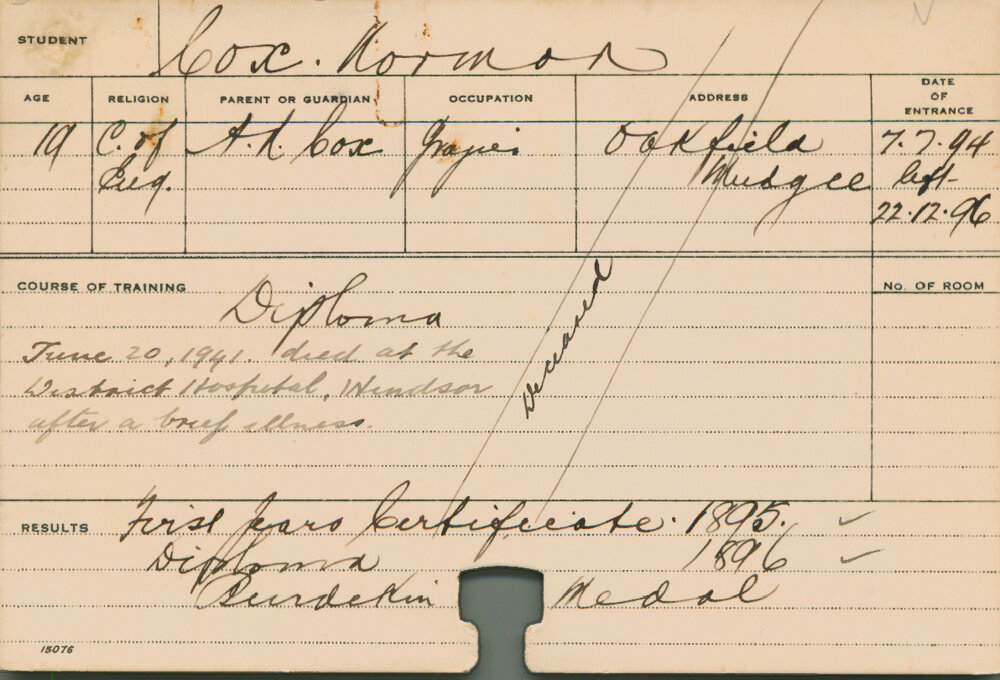 STUDENT Cox. Norman
AGE RELIGION PARENT OR GUARDIAN OCCUPATION ADDRESS DATE OF ENTRANCE
19 C. of A. R. Cox Grazier Oakfield 7.7.94
Eng. Mudgee left
22.12.96
COURSE OF TRAINING Diploma No. OF ROOM
Deceased
June 20, 1941. died at the
District Hospital, Windsor
after a brief illness.
RESULTS First Years Certificate. 1895. ✓
Diploma 1896 ✓
Burdekin Medal
15076